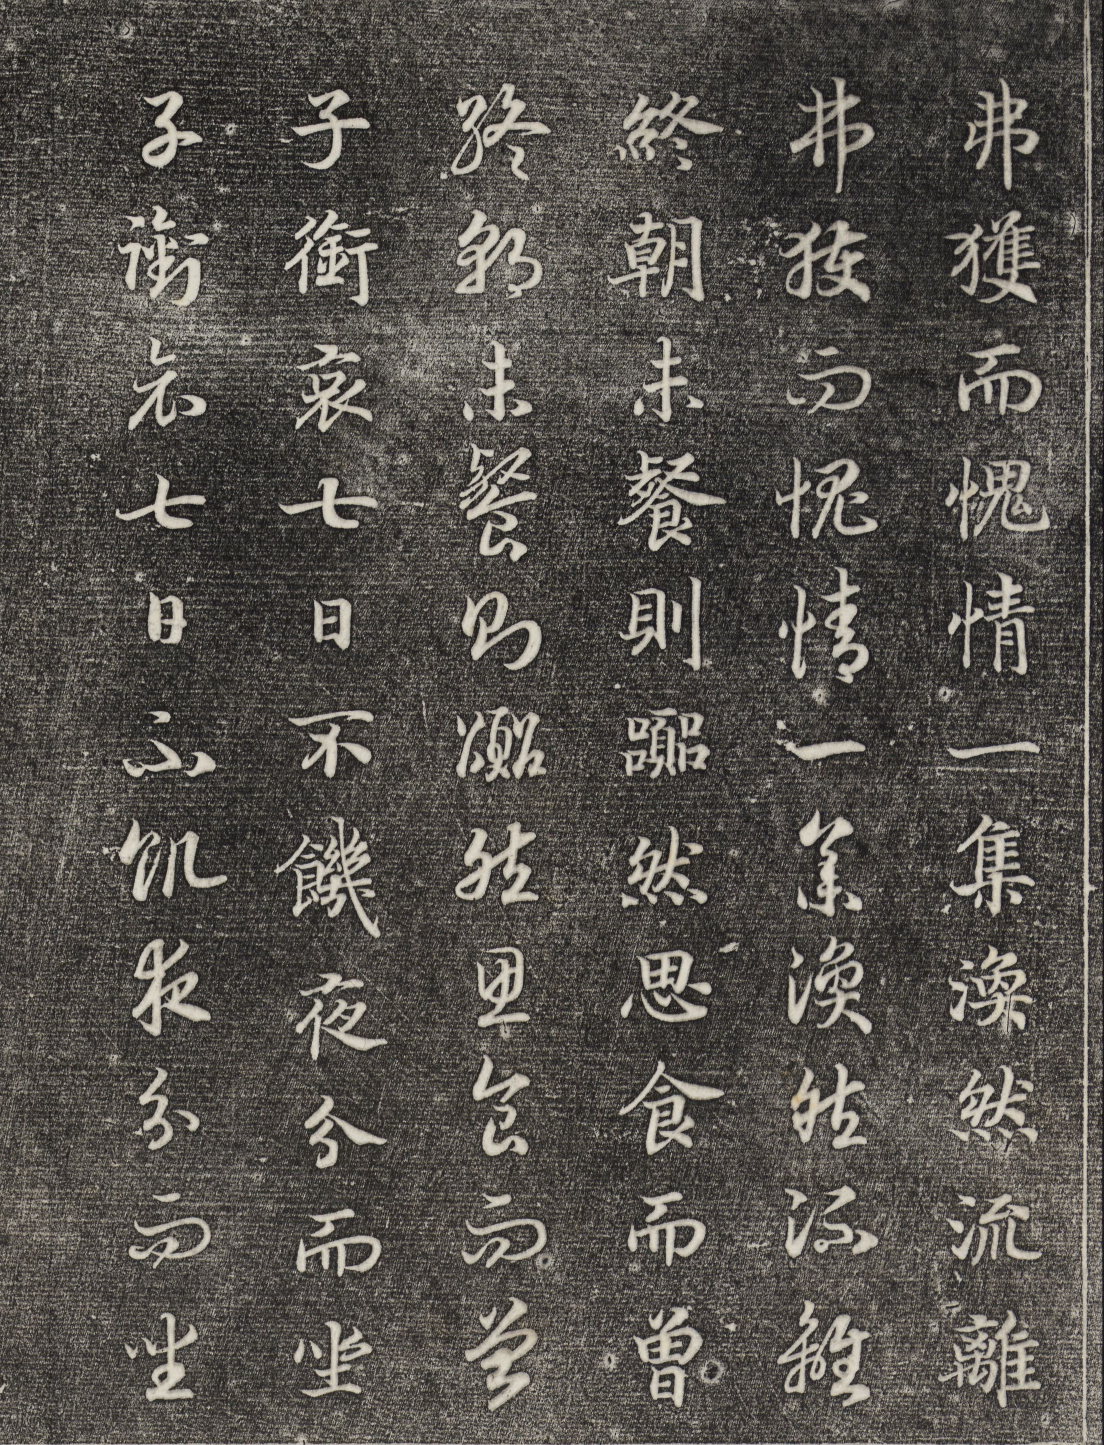 弗獲而愧情一集渙然流離
弗獲而愧情一集渙然流離
終朝未餐則囂然思食而曾
終朝未餐則囂然思食而曾
子銜哀七日不饑夜分而坐
子銜哀七日不飢夜分而坐